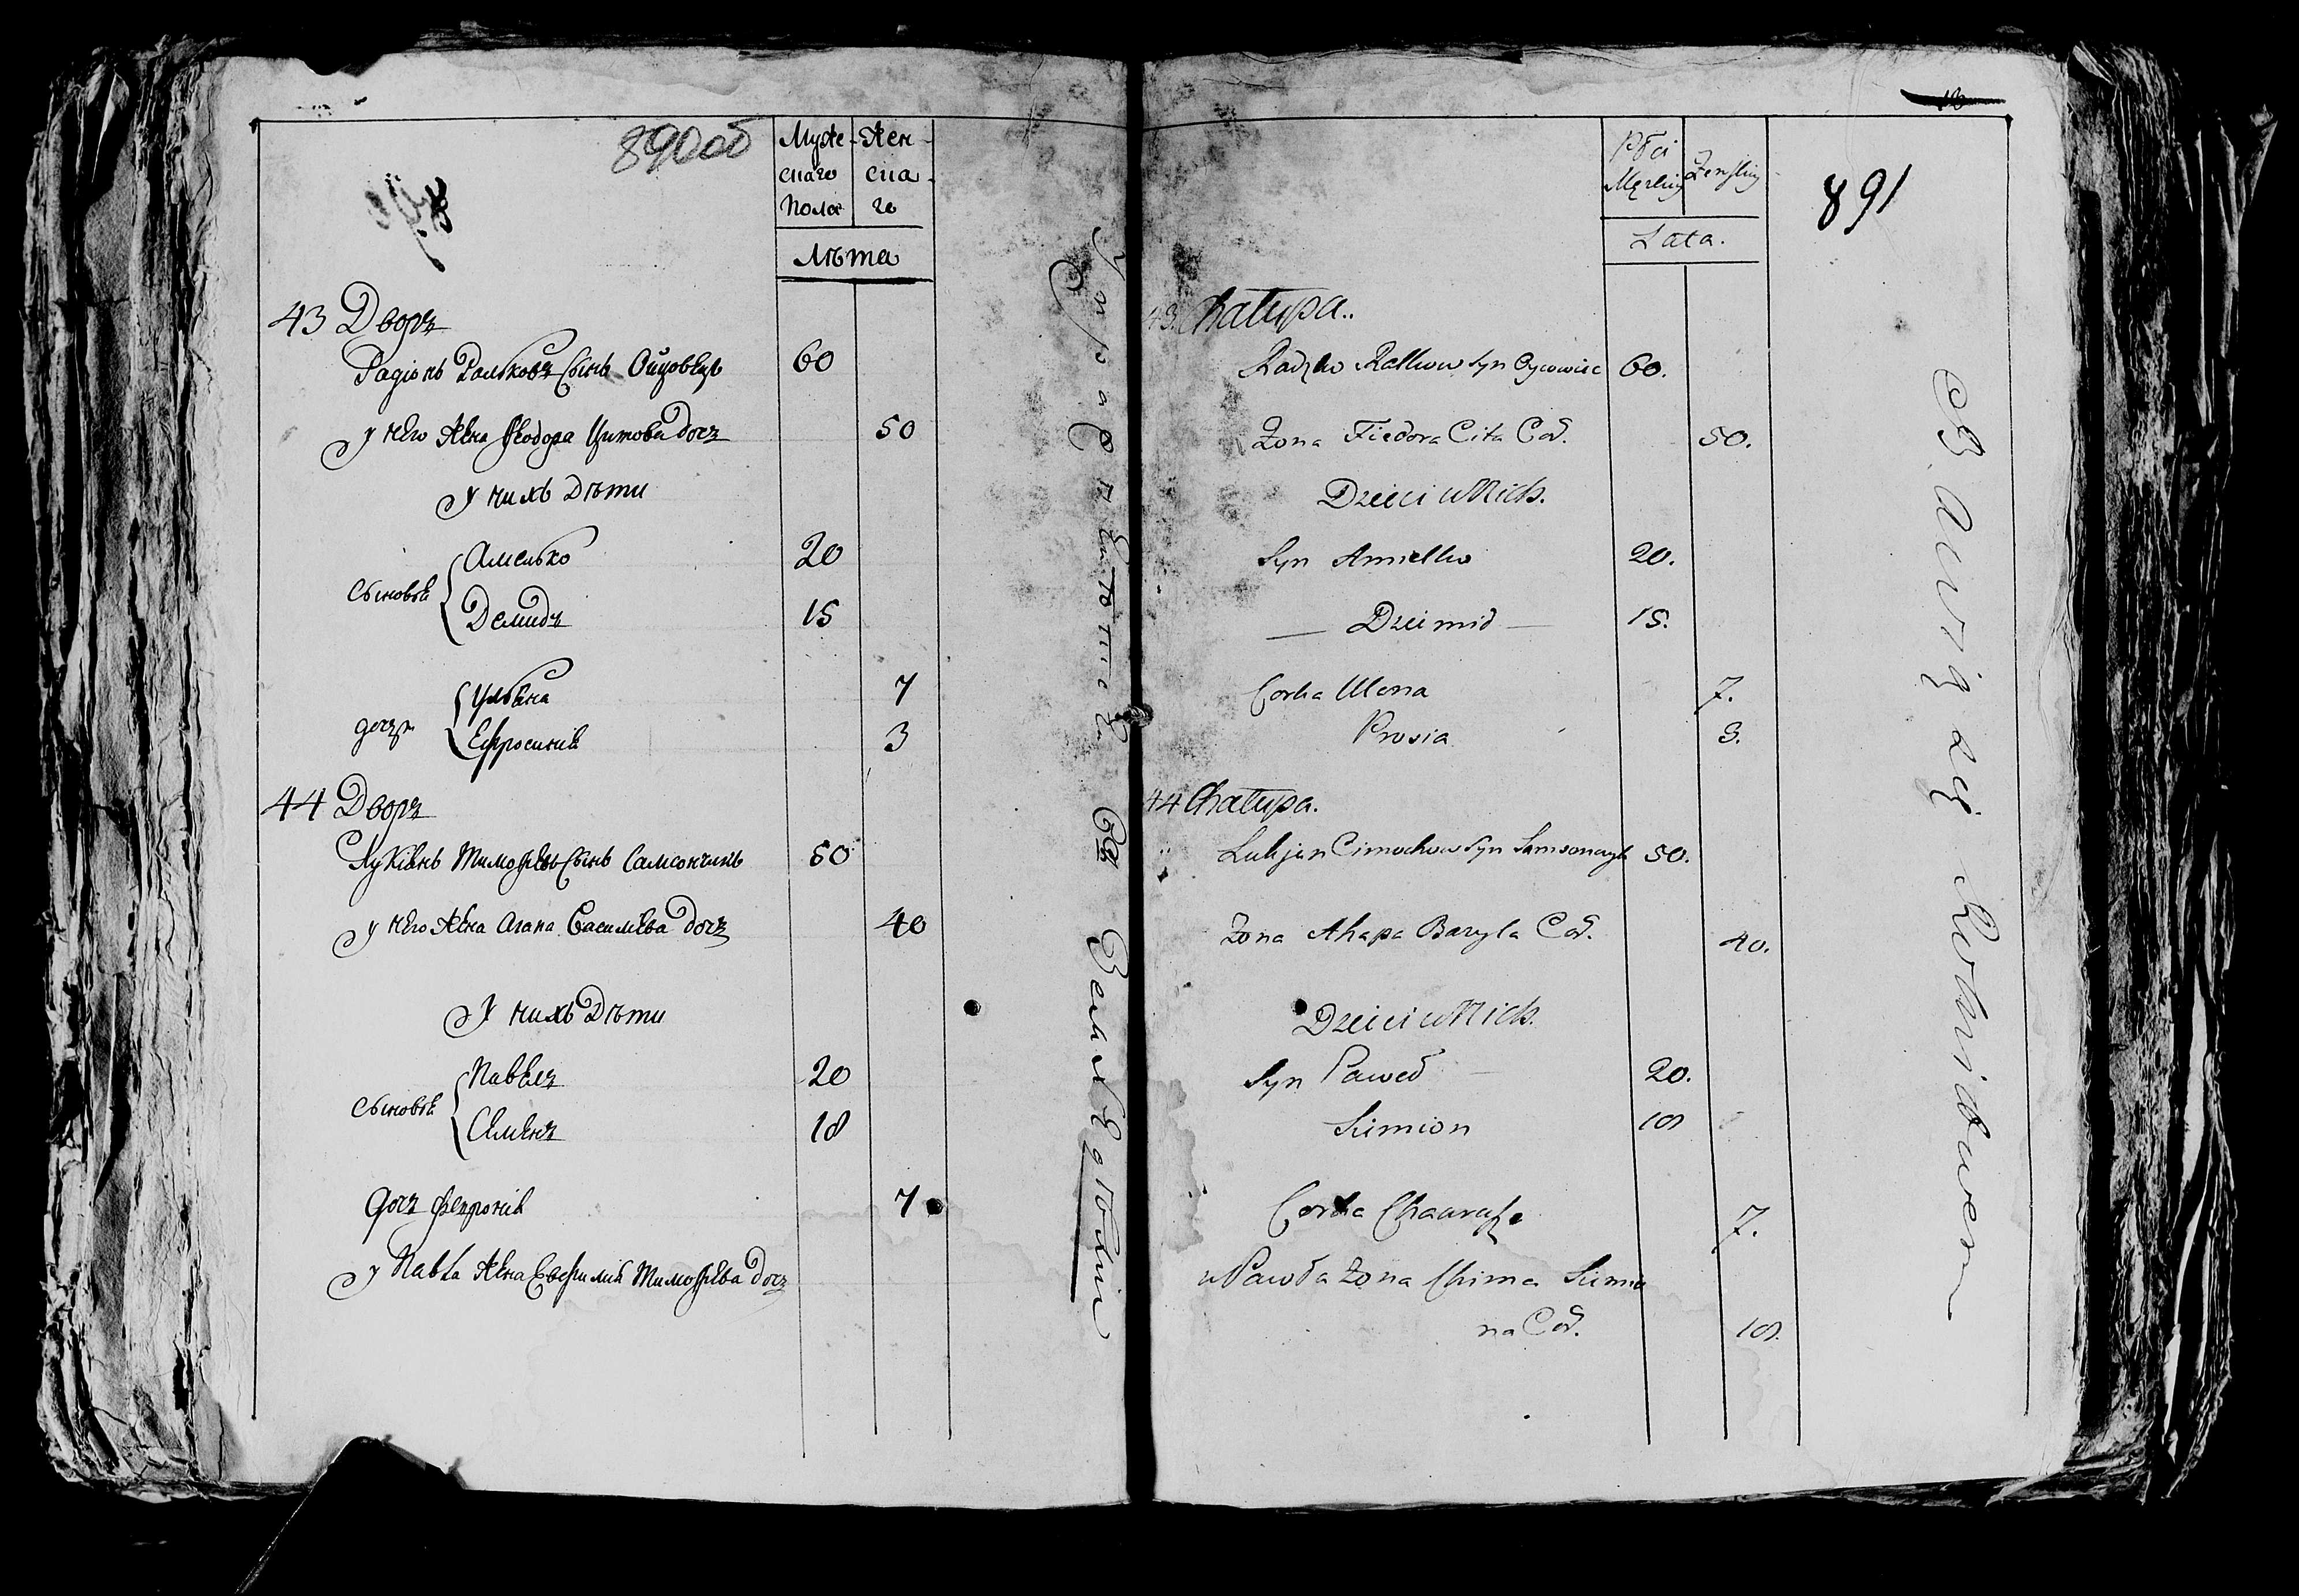 890об
Муже- Жен-
скаго ска-
полоѣ го
Лѣта
43 Дворъ
Радіонъ Рольковъ Сынъ 60
у него жена Феодора Цитова дочъ 50
У нихъ Дѣти
Сыновья Амелько 20
Демидъ 15
дочери Ульяна 7
Ефросинія 3
44 Дворъ
Лукіянъ Тимофѣевъ Сынъ Самсончикъ 50
у него жена Агапа Василіева дочъ 40
У нихъ Дѣти
Сыновья Павелъ 20
Семенъ 18
дочъ Февронія 7
у Павла жена Евфимія Тимофѣева дочъ
891
Płci
Męzkiey Zenskiey
Lata.
43 Chałupa..
Radzko Ratkow Syn Oycowisc 60.
Zona Fiedora Cita Cod. 50.
Dzieci u Nich.
Syn Amielko 20.
— Dziemid — 15.
Corka Ulena 7.
Prosia 3.
44 Chałupa.
Lukjan Cimochow Syn Samsonczyk 50.
Zona Ahapa Baryla Cod. 40.
Dzieci u Nich.
Syn Paweł 20.
Simion 18
Corka 7.
u Pawła Zona Chima Simio
na Cod. 18.